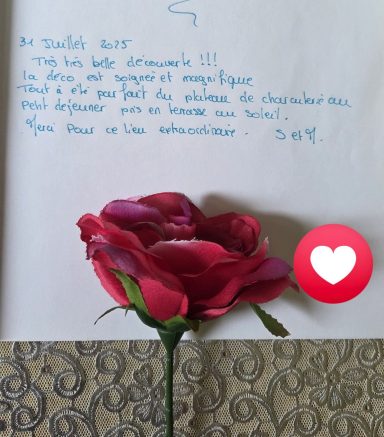 31 Juillet 2025
Très très belle découverte !!!
la déco est soignée et magnifique
Tout à été parfait du plateau de charcuterie au
petit déjeuner pris en terrasse au soleil.
Merci pour ce lieu extraordinaire. S et M.